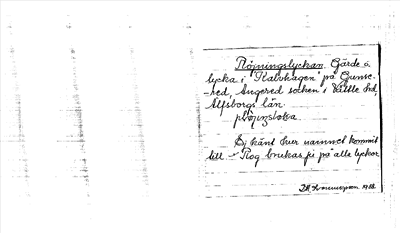 Plöjningslyckan. Gärde o.
lycka i "Kalvhagen" på Gunse-
red, Angered socken i Vättle hd,
Älfsborgs län.

Ej känt hur namnet kommit
till - Nog brukas ju på alla lyckor
1933.